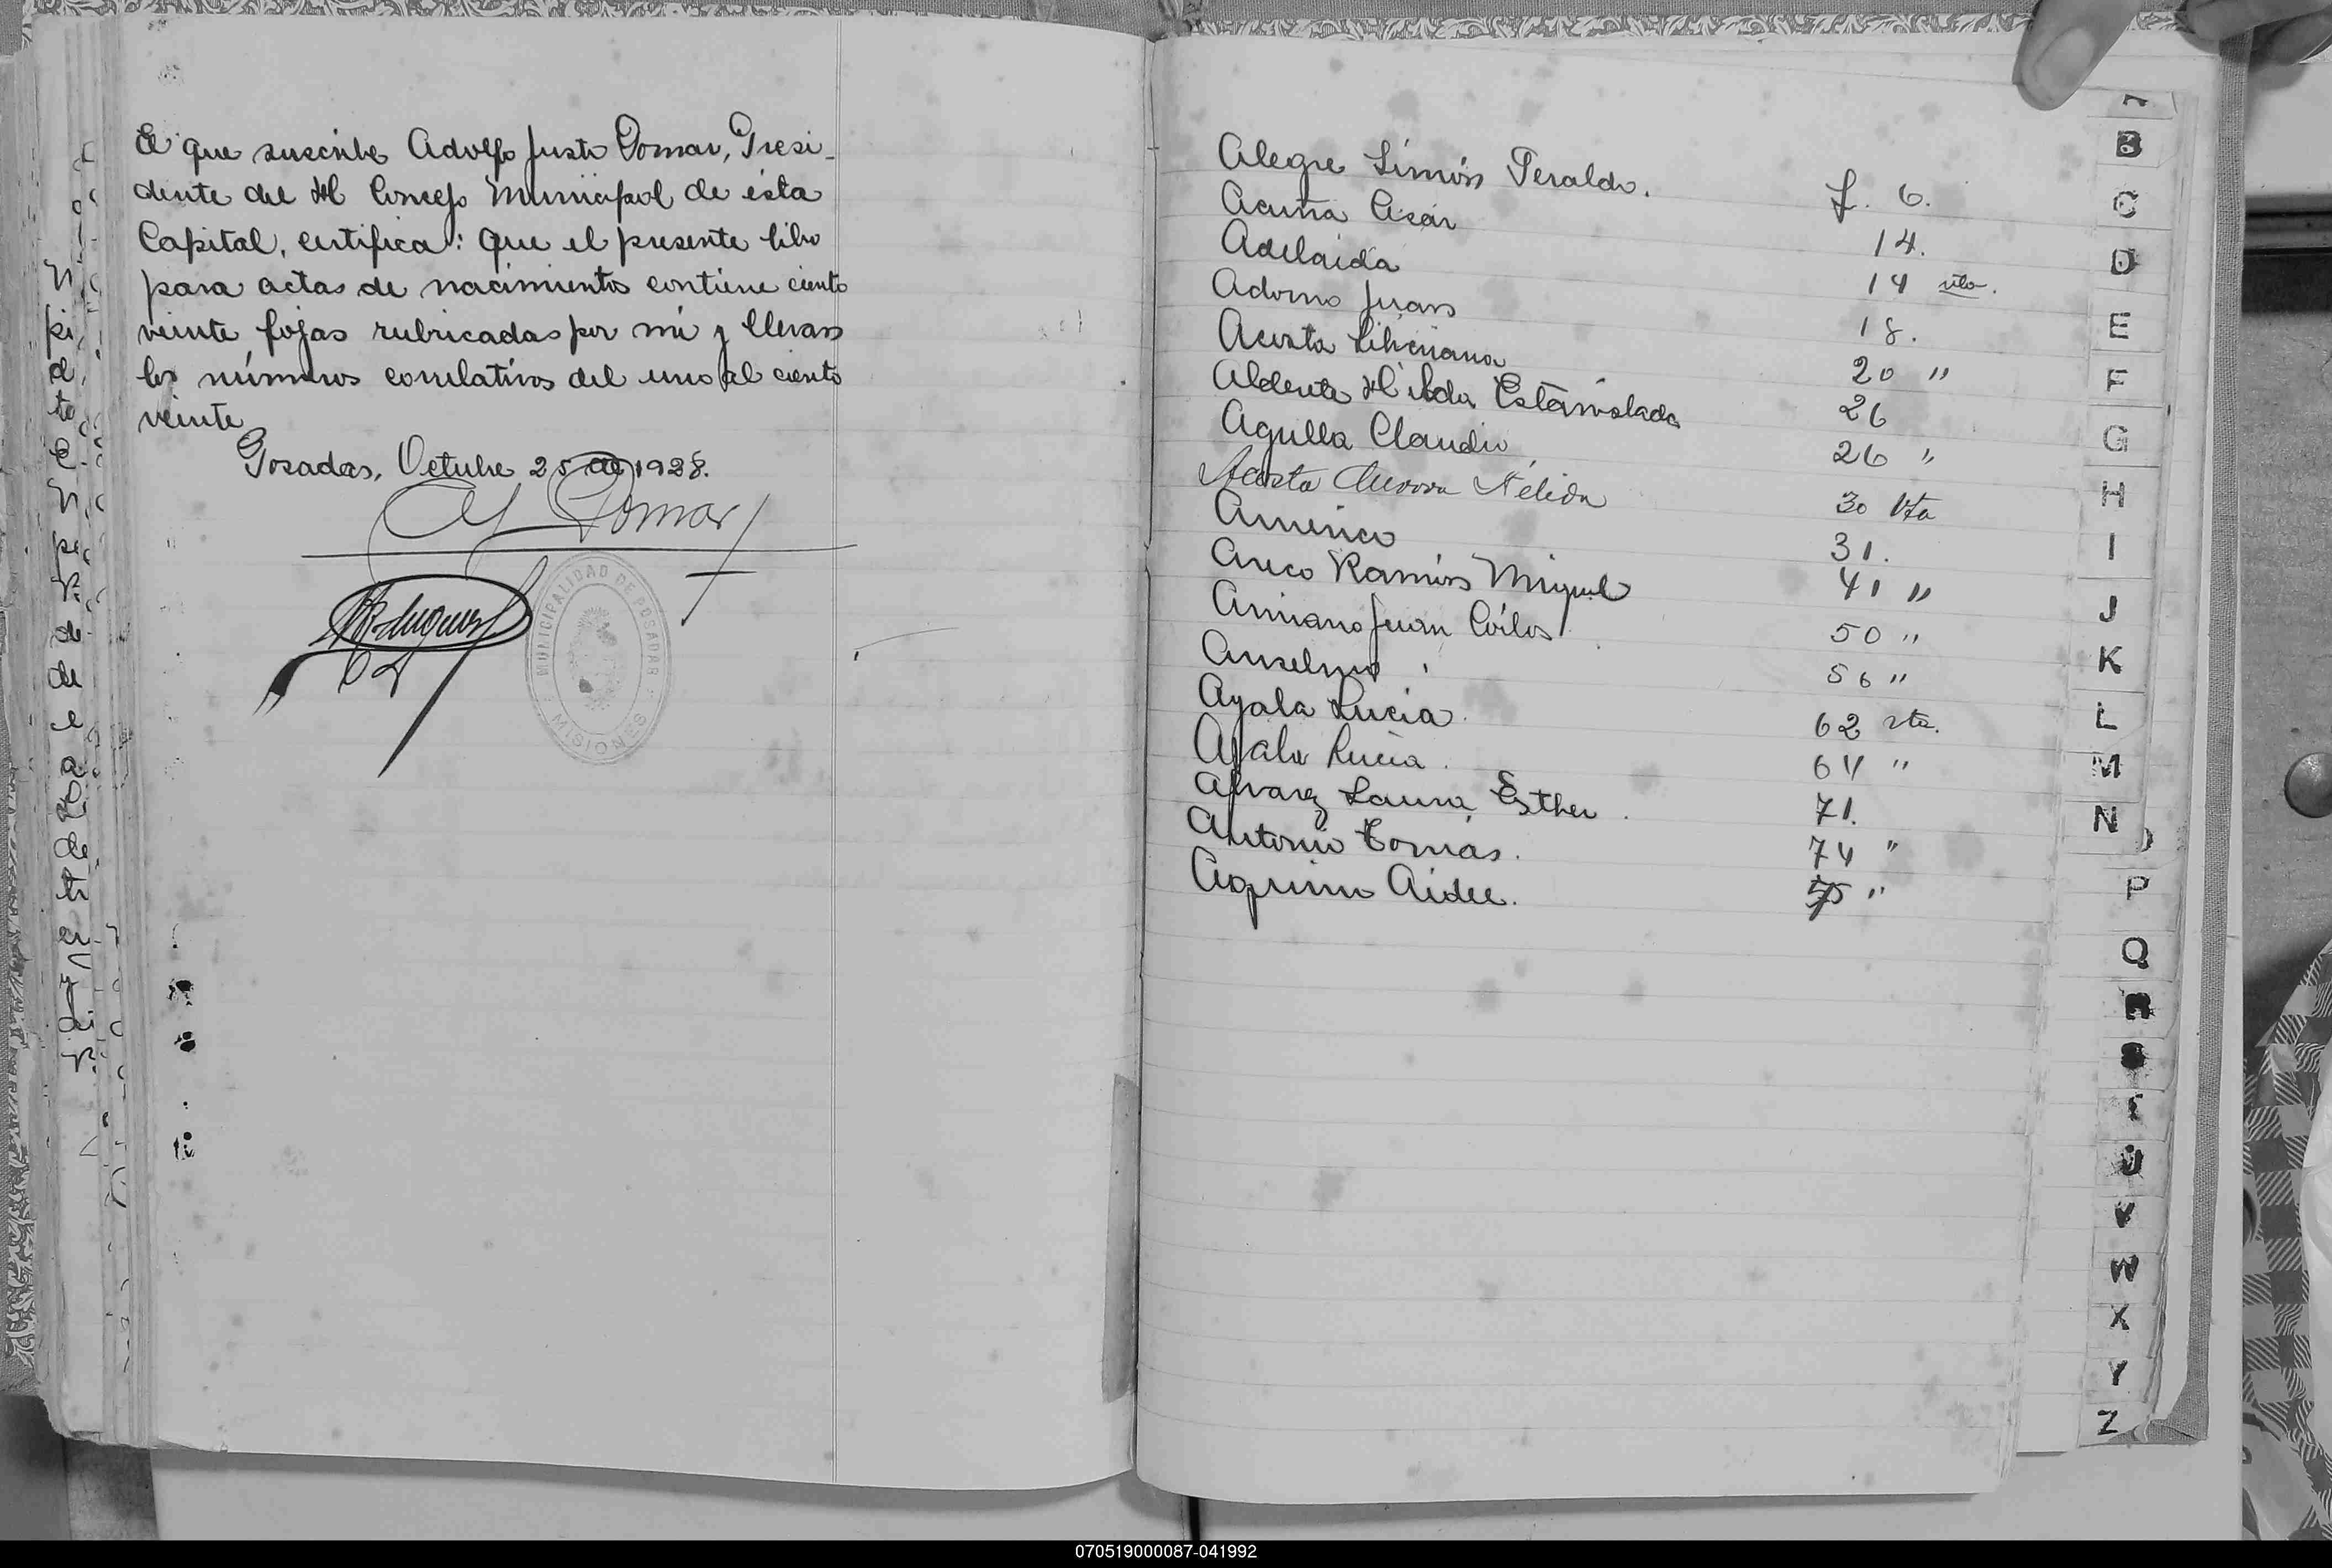 El que suscribe Adolfo Justo Pomar, Presi-
dente del H Concejo Municipal de esta
Capital, certifica: que el presente libro
para actas de nacimientos contiene ciento
veinte fojas rubricadas por mi y llevan
los números correlativos del uno al ciento
veinte
Posadas, Octubre 25 de 1928.
A J Pomar
MUNICIPALIDAD DE POSADAS
MISIONES
Alegre Simón Peraldo. f. 6.
Acuña César 14.
Adelaida 14 vta.
Adorno Juan 18.
Acosta 20 "
Alderete Hilda Estanislada 26
Agulla Claudio 26 "
Acosta Nélida 30 Vta
Americo 31.
Areco Ramón Miguel 41 "
Juan Cárlos 50 "
Anselmo 56 "
Ayala Lucia. 62 vta.
Ayala Lucia. 64 "
Alvarez Laura Esther. 71.
Antonio Tomás. 74 "
Aidee. "
A
B
C
D
E
F
G
H
I
J
K
L
M
N
P
Q
R
S
T
U
V
W
X
Y
Z
070519000087-041992